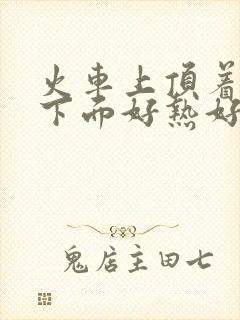 火車上頂着
下面好熱好
鬼店主田七